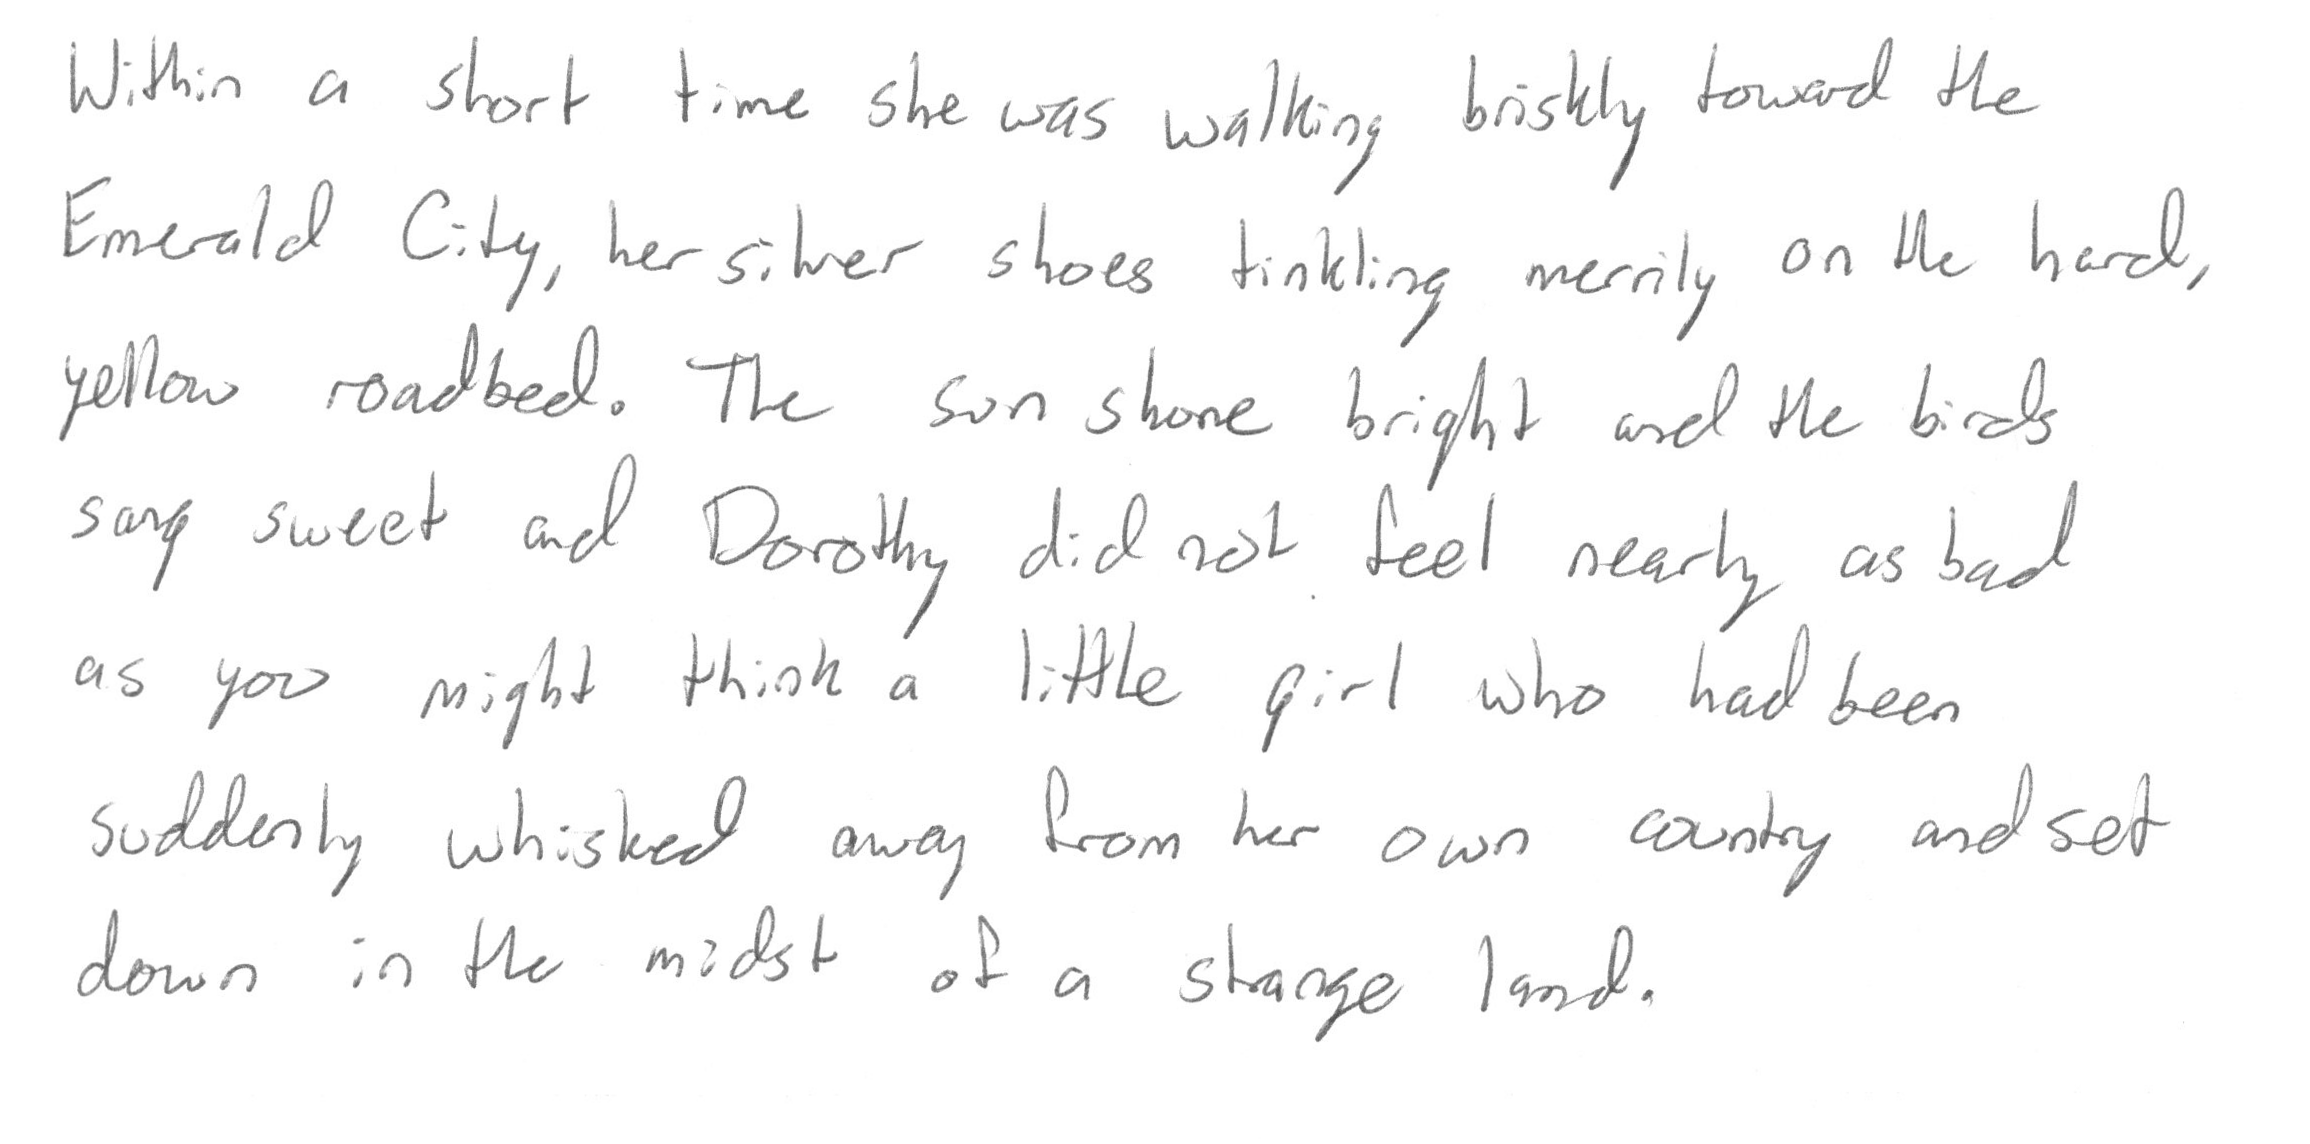 Within a short time she was walking briskly toward the
Emerald City, her silver shoes tinkling merrily on the hard,
yellow roadbed. The sun shone bright and the birds
sang sweet and Dorothy did not feel nearly as bad
as you might think a little girl who had been
suddenly whisked away from her own country and set
down in the midst of a strange land.